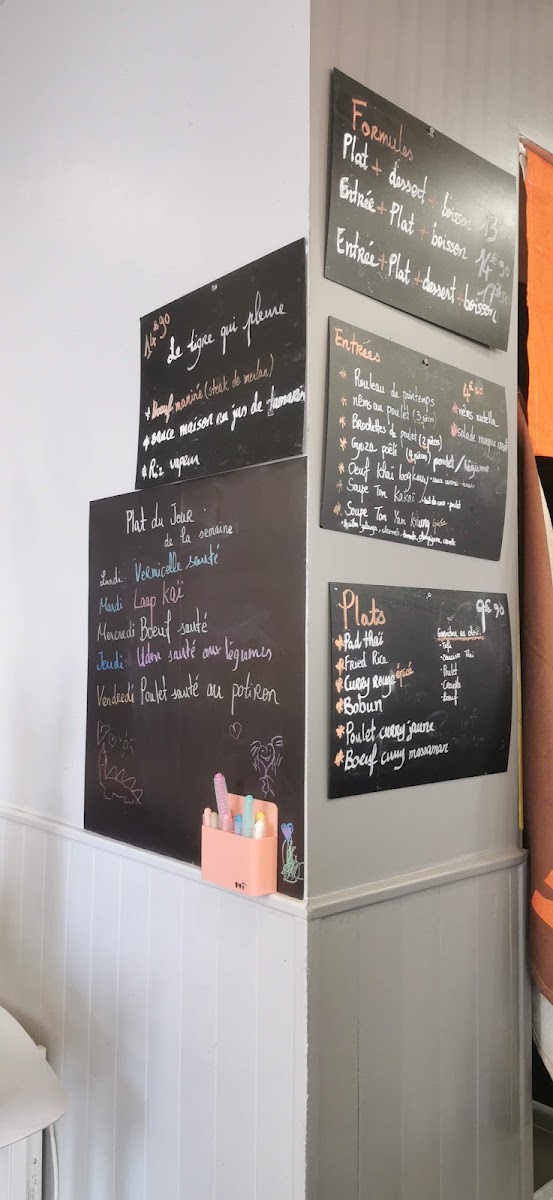 14€90
Le tigre qui pleure
* Boeuf mariné (steak de merlan)
* sauce maison au jus de tamarin
* Riz vapeur
Plat du Jour
de la semaine
Lundi Vermicelle sauté
Mardi Laap Kaï
Mercredi Boeuf sauté
Jeudi Udon sauté aux légumes
Vendredi Poulet sauté au potiron
Formules
Plat + dessert + boisson 13€
Entrée + Plat + boisson 14€90
Entrée + Plat + dessert + boisson 17€50
Entrées
4€50
* Rouleau de printemps
* nems au poulet (3 pièces)
* Brochettes de poulet (2 pièces)
* Gyoza poêlé poulet/légume
* Oeuf Khai
* Soupe Tom Kakaï - lait de coco - poulet
* Soupe Tom Yam Khung épicé
* nems nutella
* salade mangue
Plats
9€90
* Pad thaï
* Fried Rice
* Curry rouge épicé
* Bobun
* Poulet curry jaune
* Boeuf curry massaman
Garniture au choix:
- Tofu
- Saucisse Thaï
- Poulet
- Crevette
- Boeuf